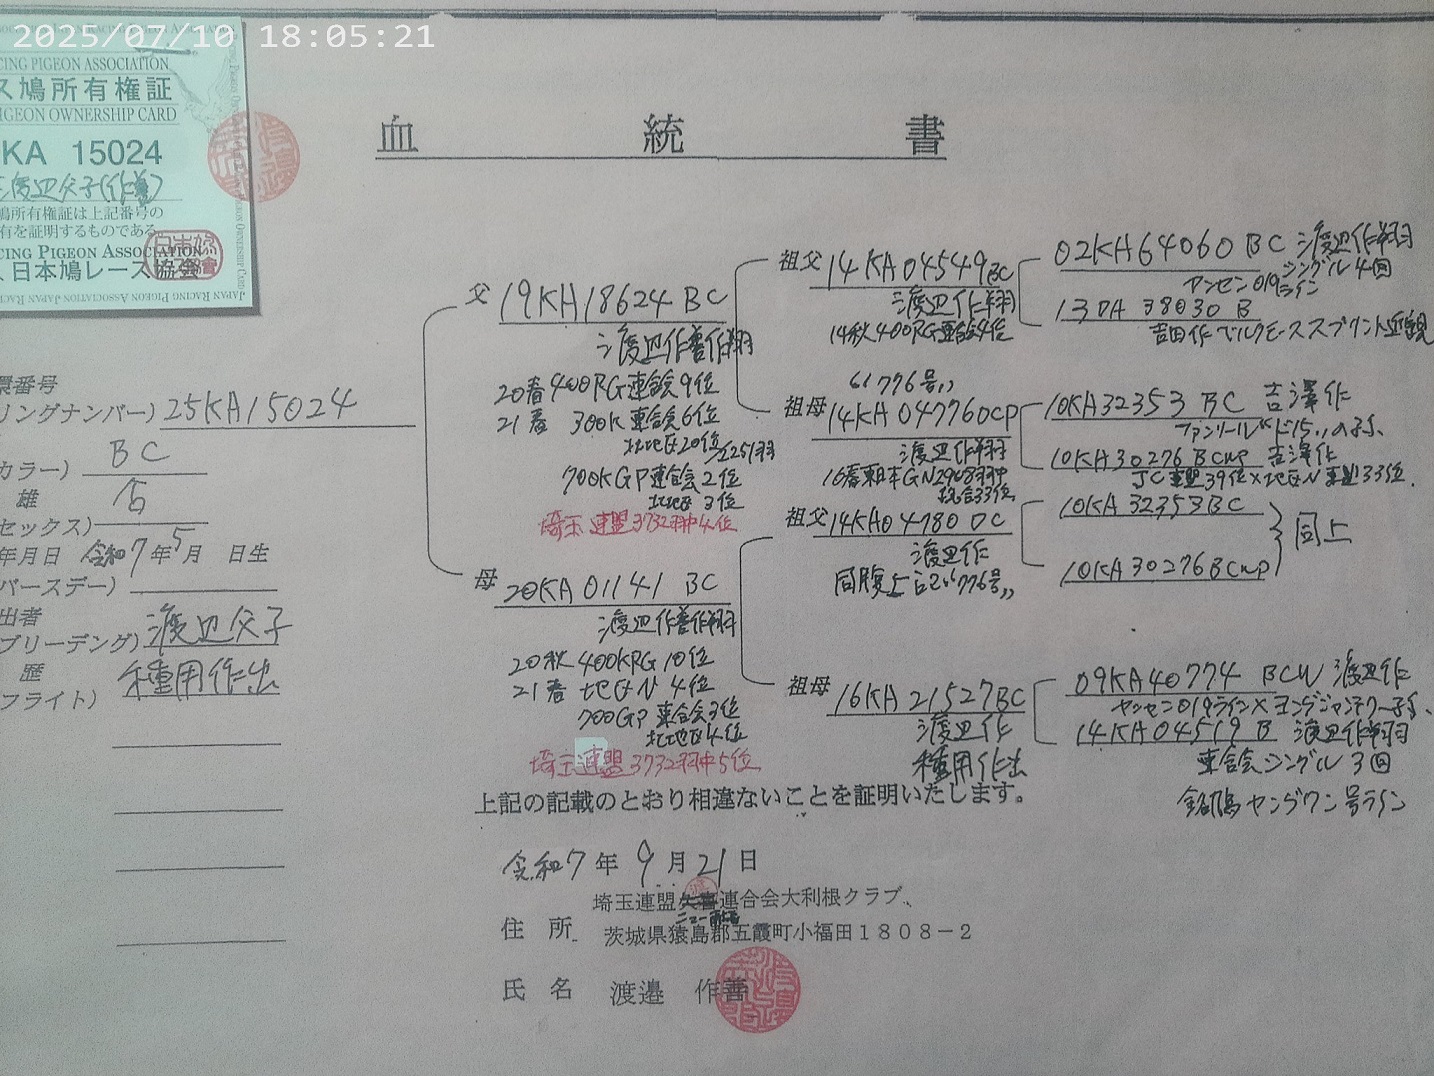 2025/07/10 18:05:21
CING PIGEON ASSOCIATION
ス鳩所有権証
PIGEON OWNERSHIP CARD
KA 15024
渡辺父子(作善)
鳩所有権証は上記番号の
有を証明するものである。
CING PIGEON ASSOCIATION
日本鳩レース協会
血統書
環番号
リングナンバー) 25KA15024
カラー) BC
雄
セックス)
年月日 令和7年5月 日生
バースデー)
出者
ブリーデング) 渡辺父子
歴 種用作出
フライト)
父 19KA18624 BC
渡辺作善作翔
20春400RG連合会9位
21春 300K連合会6位
北地区20位
700KGP連合会2位
北地区3位
埼玉連盟3732羽中4位
母 20KA01141 BC
渡辺作善作翔
20秋400KRG10位
21春 地区N 4位
700GP連合会3位
北地区4位
埼玉連盟3732羽中5位
祖父 14KA04549 BC
渡辺作翔
14秋400RG連合会4位
"776号"
祖母 14KA04776 DCP
渡辺作翔
16春東日本GN2908羽中
総合33位
祖父 14KA04780 DC
渡辺作
同腹上記"776号"
祖母 16KA21527 BC
渡辺作
種用作出
02KA64060 BC 渡辺作翔
シングル4回
ヤンセン019ライン
13DA38030 B
吉田作 ベルクモーススプリント近親
10KA32353 BC 吉澤作
10KA30276 BCWP 吉澤作
JC連盟39位×地区N連盟33位
10KA32353BC
10KA30276BCWP
同上
09KA40774 BCW 渡辺作
ヤンセン019ライン×ヨングヤンセン
14KA04519 B 渡辺作翔
連合会シングル3回
銘鳩ヤングワン号ライン
上記の記載のとおり相違ないことを証明いたします。
令和7年9月21日
埼玉連盟 連合会大利根クラブ
住所 茨城県猿島郡五霞町小福田1808-2
氏名 渡邉 作善